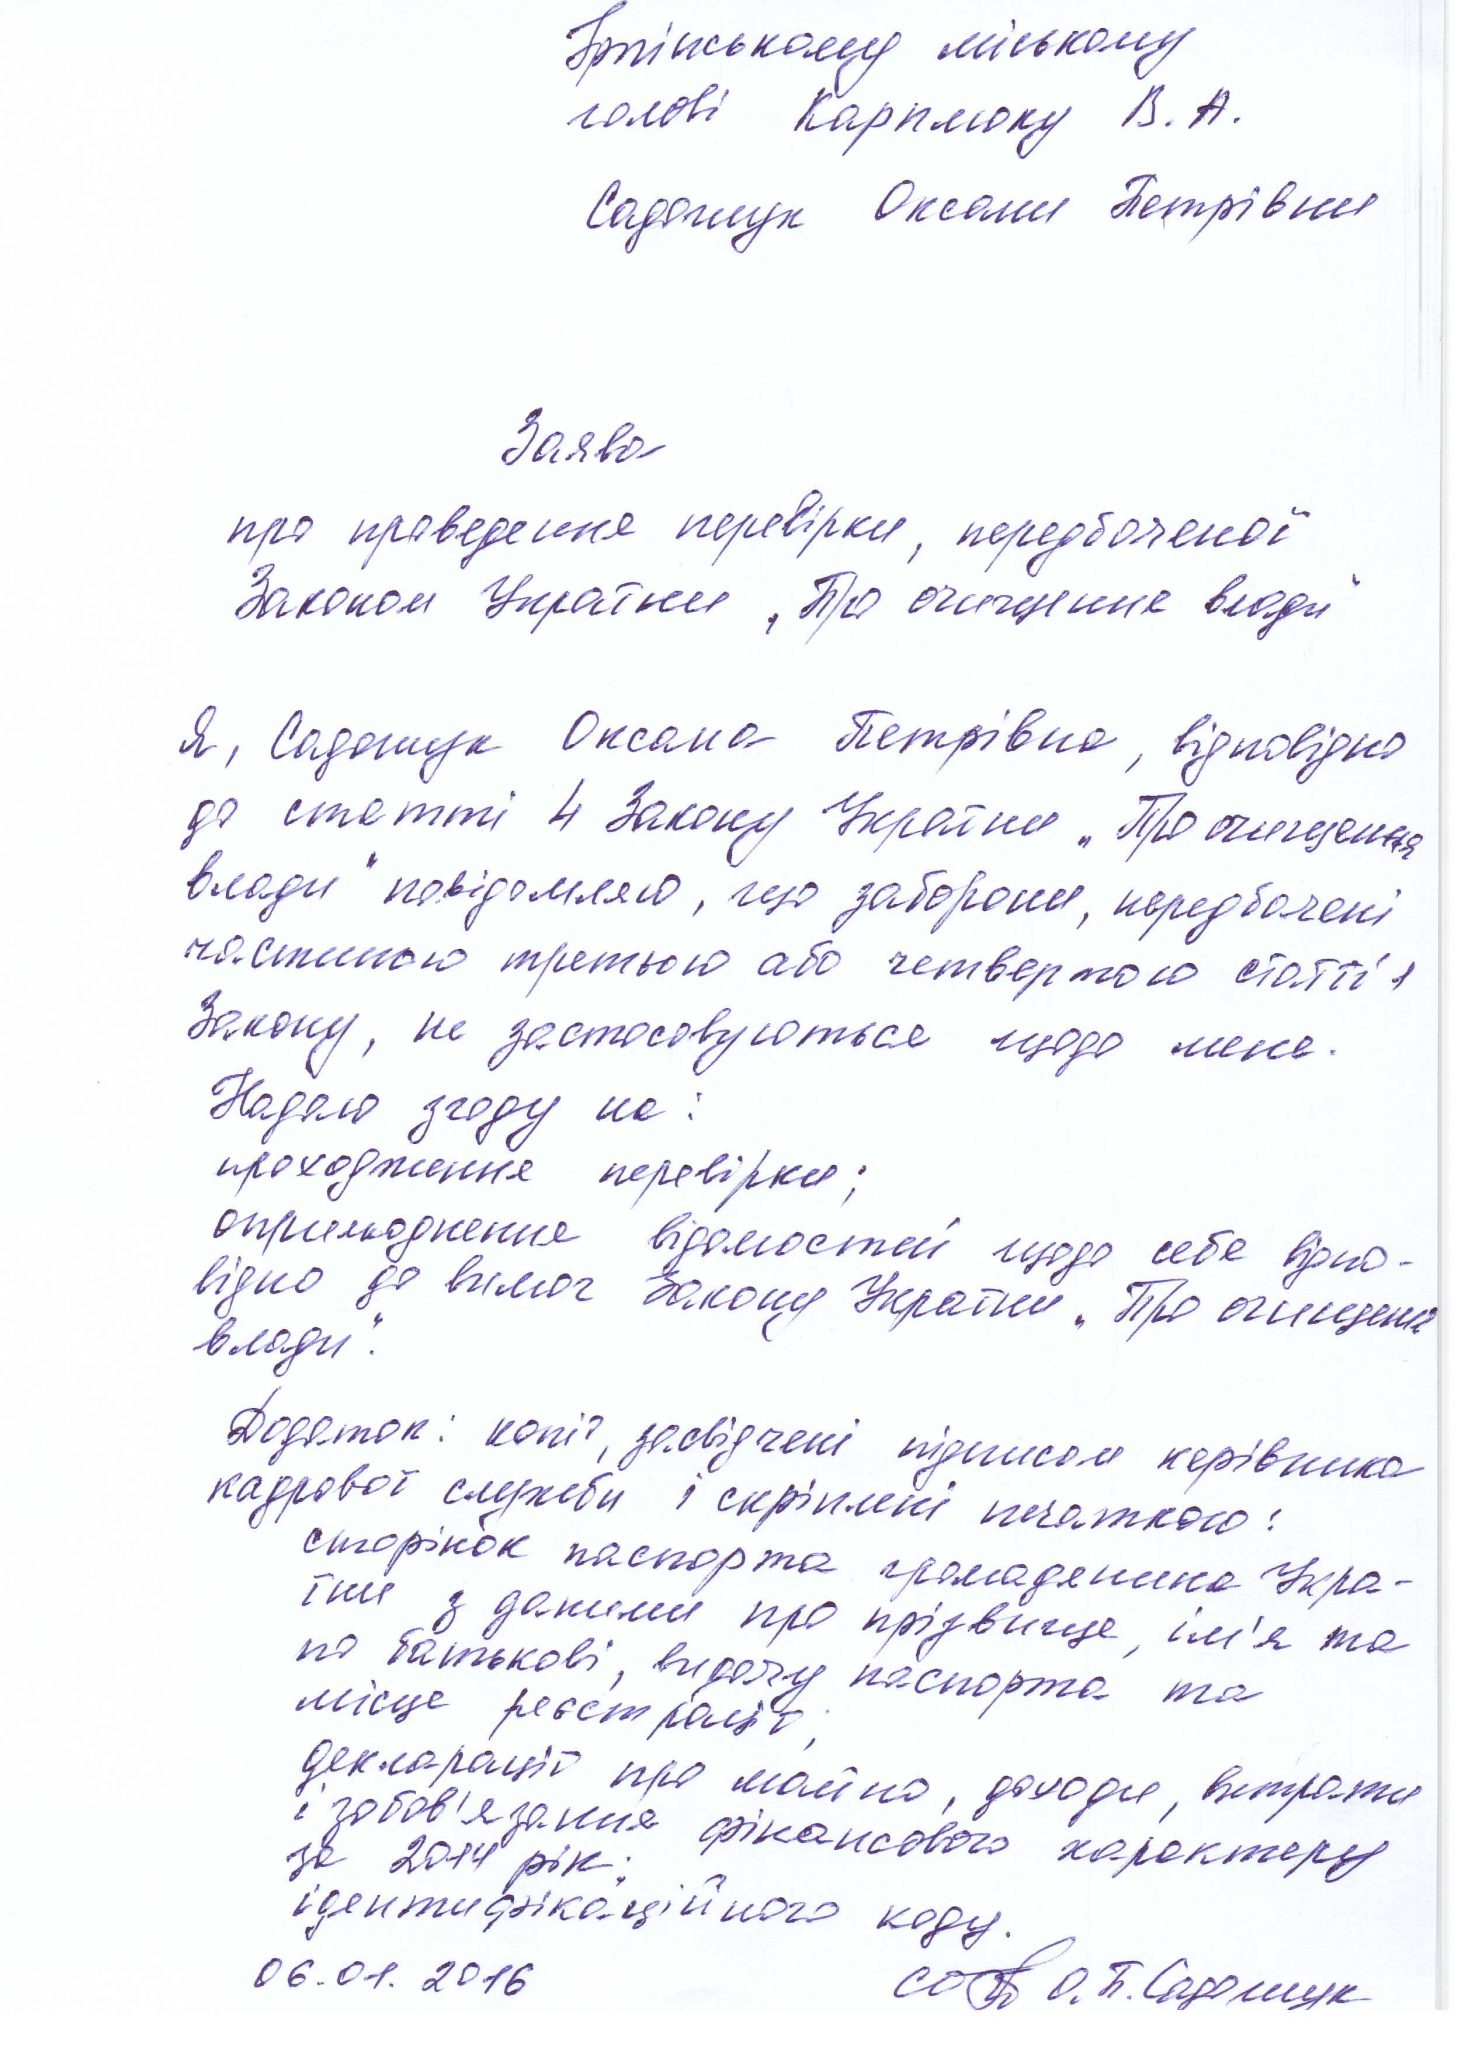 Ірпінському міському
голові Карплюку В. А.
Садощук Оксани Петрівни
Заява
про проведення перевірки, передбаченої
Законом України „Про очищення влади"
Я, Садощук Оксана Петрівна, відповідно
до статті 4 Закону України „Про очищення
влади" повідомляю, що заборони, передбачені
частиною третьою або четвертою статті 1
Закону, не застосовуються щодо мене.
Надаю згоду на:
проходження перевірки;
оприлюднення відомостей щодо себе відпо-
відно до вимог Закону України „Про очищення
влади".
Додаток: копії, засвідчені підписом керівника
кадрової служби і скріплені печаткою:
сторінок паспорта громадянина Укра-
їни з даними про прізвище, ім'я та
по батькові, видачу паспорта та
місце реєстрації;
декларації про майно, доходи, витрати
і зобов'язання фінансового характеру
за 2014 рік;
ідентифікаційного коду.
06.01.2016 О.П. Садощук